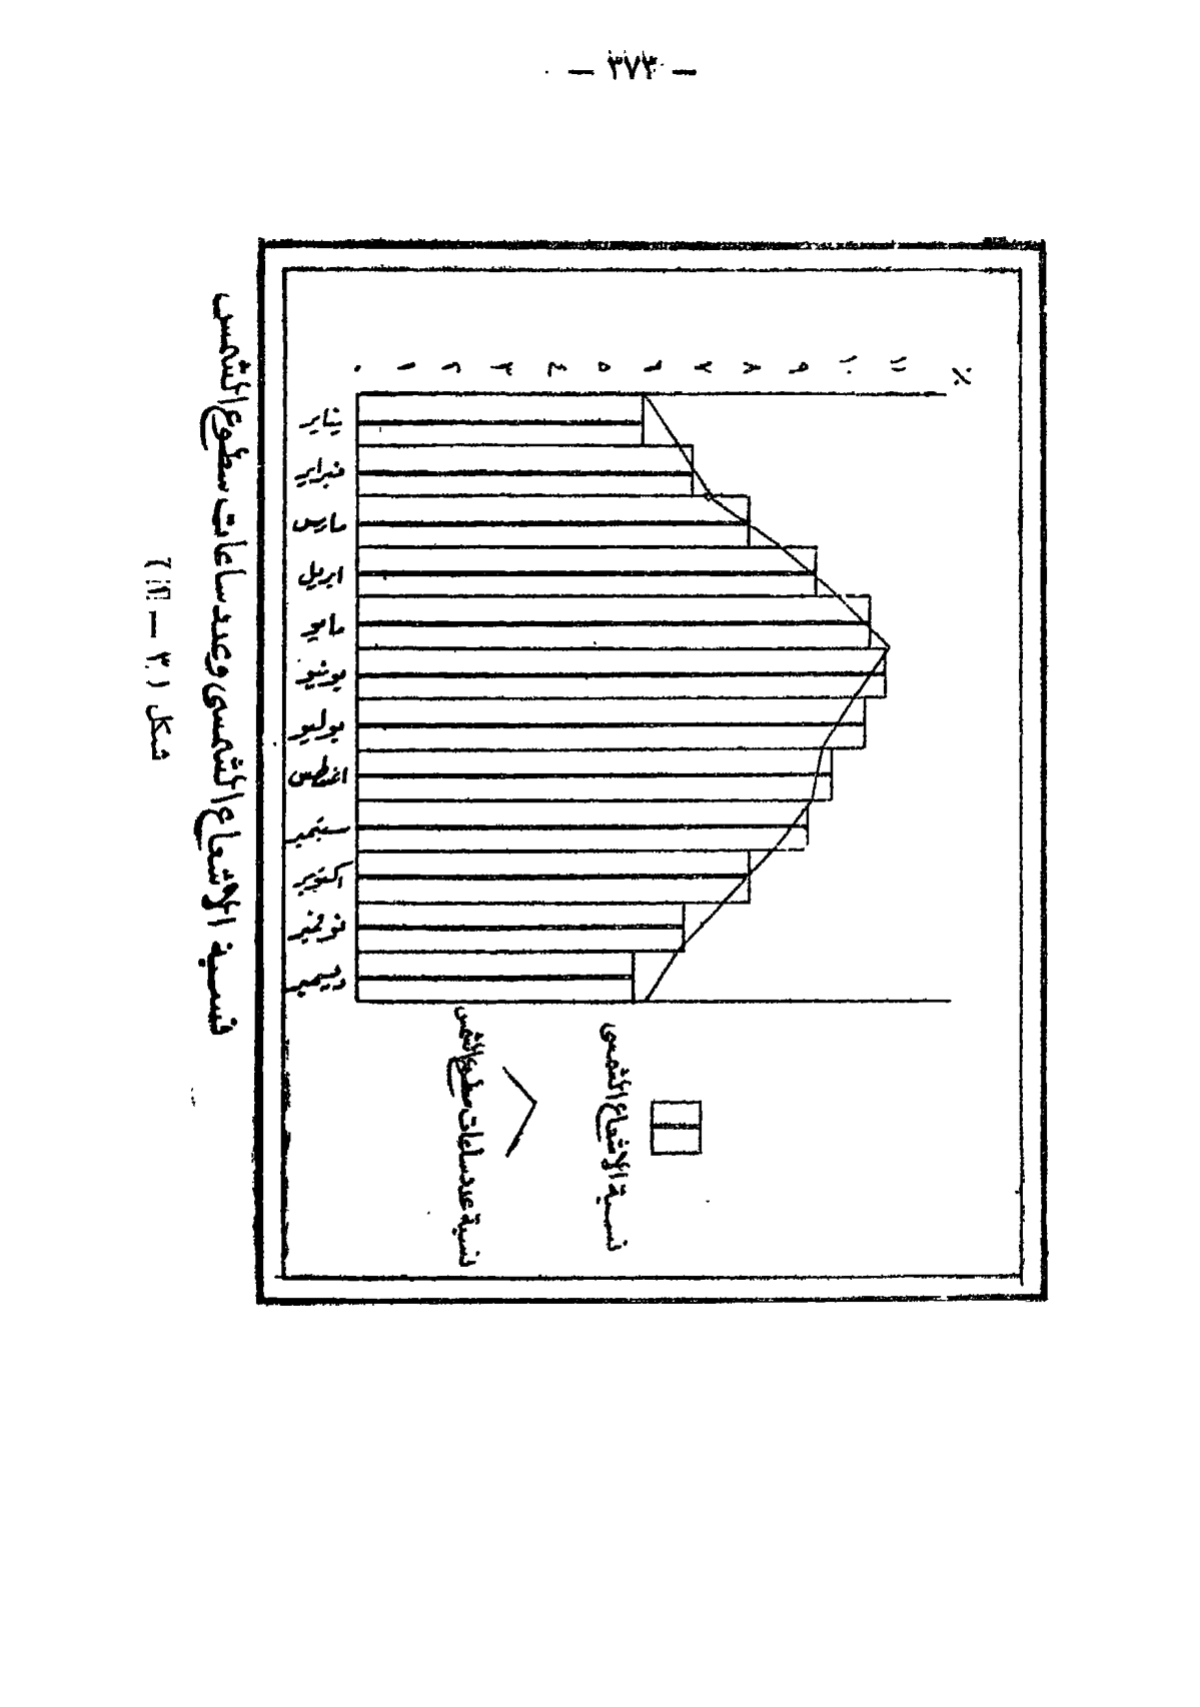 — ٣٧٣ —
٪
١١
١٠
٩
٨
٧
٦
٥
٤
٣
٢
١
٠
يناير
فبراير
مارس
ابريل
مايو
يونيو
يوليو
اغسطس
سبتمبر
اكتوبر
نوفمبر
ديسمبر
نسبة الاشعاع الشمسى
نسبة عدد ساعات سطوع الشمس
نسبة الاشعاع الشمسى وعدد ساعات سطوع الشمس
شكل (٣ —